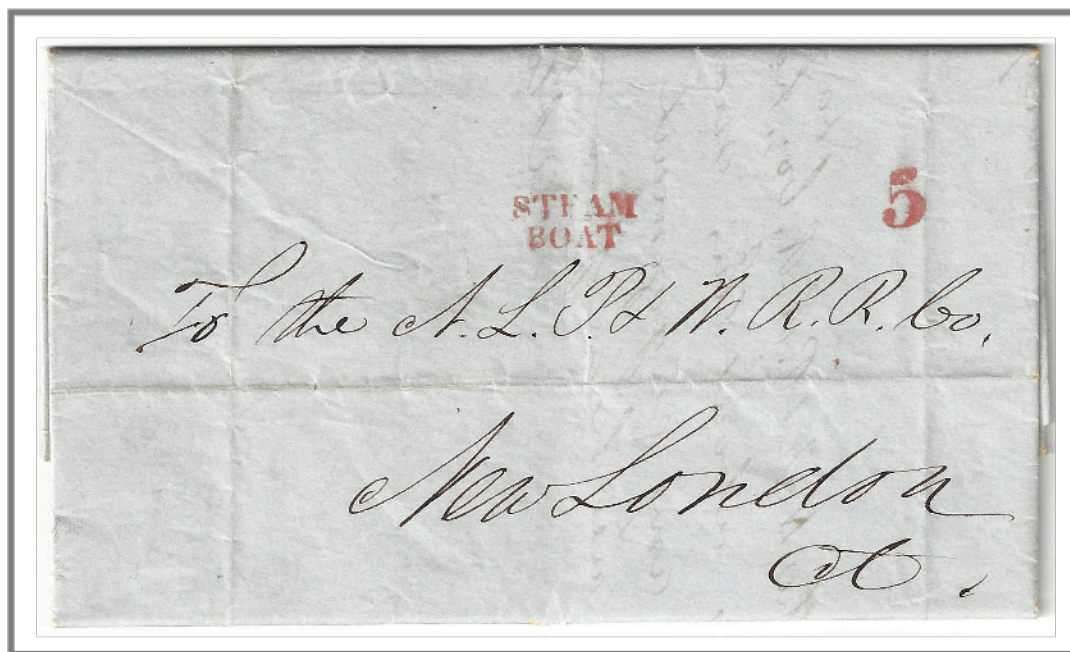 STEAM
BOAT
5
To the N. L. P. & W. R. R. Co.
New London
Ct.